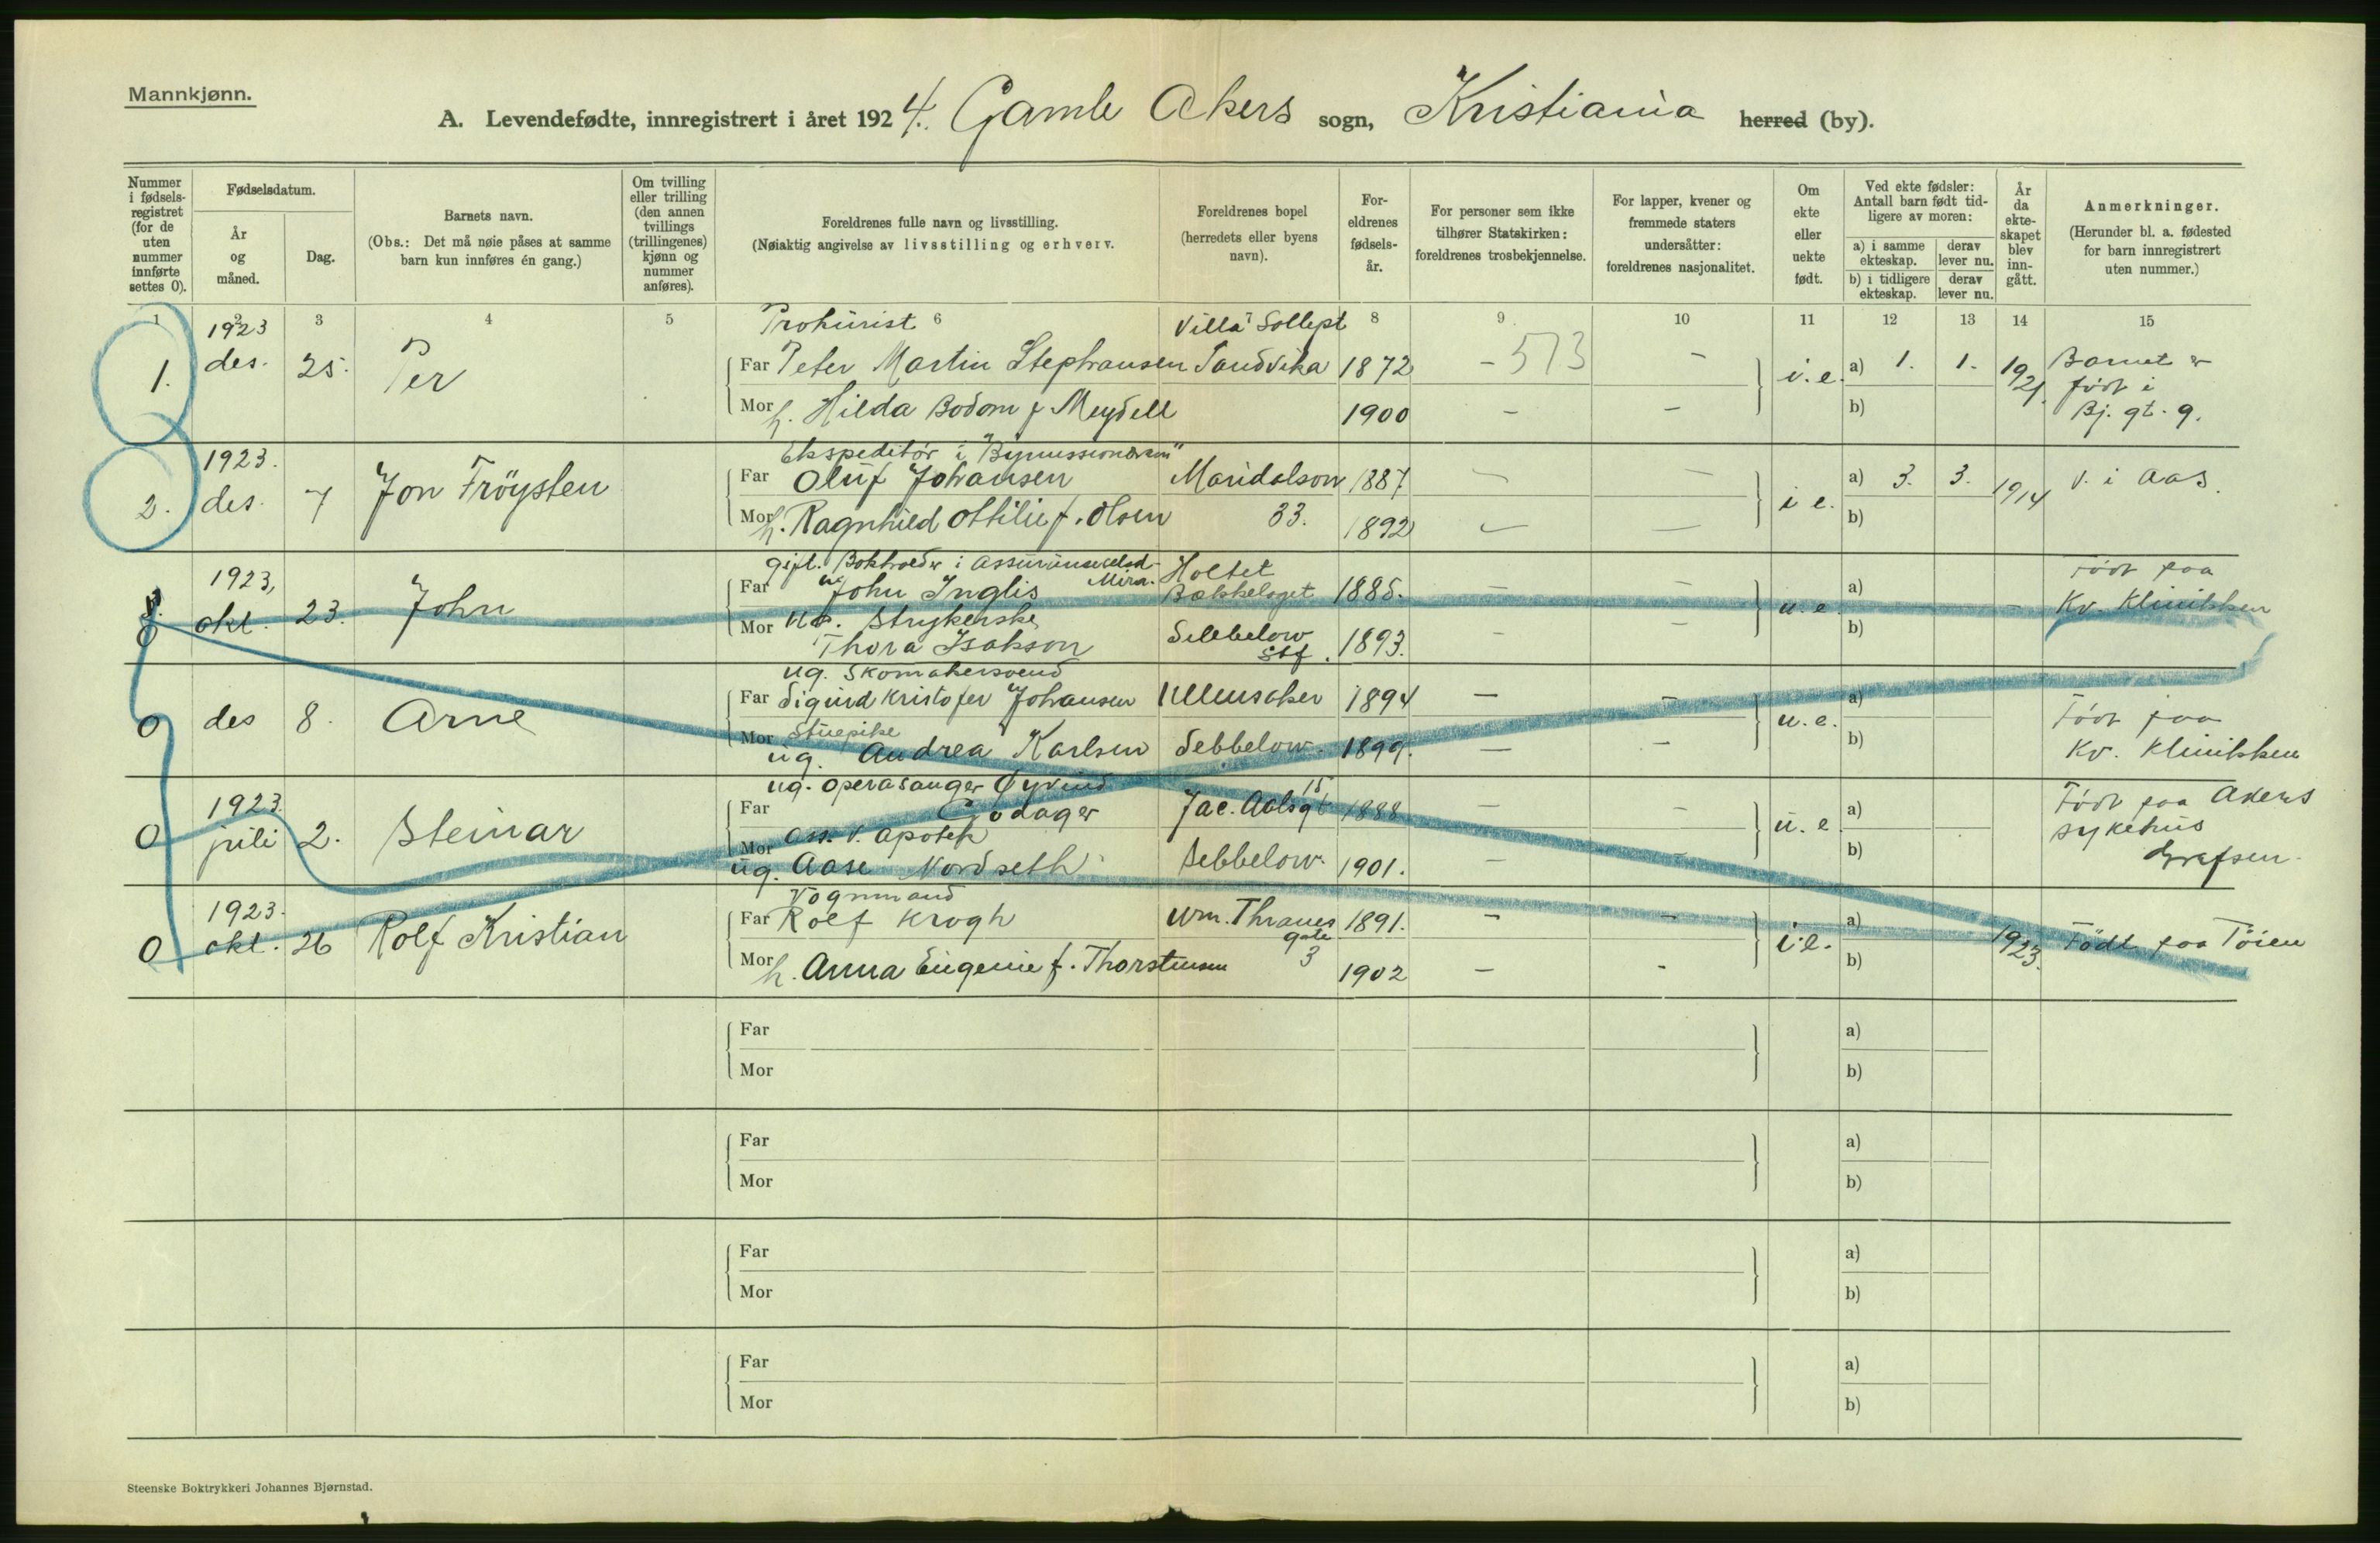 Mannkjønn.
A. Levendefødte, innregistrert i året 1924. Gamle Akers sogn, Kristiania herred (by).
Nummer i fødselsregistret (for de uten nummer innførte settes 0).
Fødselsdatum.
År og måned.
Dag.
Barnets navn.
(Obs.: Det må nøie påses at samme barn kun innføres én gang.)
Om tvilling eller trilling (den annen tvillings (trillingenes) kjønn og nummer anføres).
Foreldrenes fulle navn og livsstilling.
(Nøiaktig angivelse av livsstilling og erhverv.
Foreldrenes bopel (herredets eller byens navn).
Foreldrenes fødselsår.
For personer som ikke tilhører Statskirken: foreldrenes trosbekjennelse.
For lapper, kvener og fremmede staters undersåtter: foreldrenes nasjonalitet.
Om ekte eller uekte født.
Ved ekte fødsler: Antall barn født tidligere av moren:
a) i samme ekteskap.
derav lever nu.
b) i tidligere ekteskap.
derav lever nu.
År da ekteskapet blev inngått.
Anmerkninger.
(Herunder bl. a. fødested for barn innregistrert uten nummer.)
1 2 3 4 5 6 8 9 10 11 12 13 14 15
1923 Prokurist Villa Sollept
1. des. 25. Per Far Peter Martin Stephansen Sandvika 1872 - 573 - i. e. a) 1. 1. 1921. Barnet er født i Bj. gt. 9.
Mor h. Hilda Bodom f Meydell 1900 - - b)
1923. Ekspeditør i "Bymissionæren"
2. des. 7 Jon Fröysten Far Oluf Johansen Maridalsvn 1887 - - i e. a) 3. 3. 1914 V. i Aas.
Mor h. Ragnhild Ottilie f. Olsen 33. 1892 - - b)
1923, gift. Bokholder i Assuranseselsk. Mira. Holtet
0 okt. 23. John Far John Inglis Bækkelaget 1885. - - u. e. a) - Født paa Kv. Klinikken
Mor ug. Strykerske Thora Isakson Sebbelow Stf. 1893. - - b)
ug. Skomakersvend
0 des 8. Arne Far Sigurd Kristofer Johansen Ullensaker 1894 - - u. e. a) Født paa Kv. Klinikken
Stuepike
Mor ug. Andrea Karlsen Sebbelow. 1899. - - b)
1923. ug. operasanger Øyvind
0 juli 2. Steinar Far Godager Jac. Aalsgt 15 1888 - - u. e a) Født paa Akers sykehus Grefsen.
Ass. v. apotek
Mor ug. Aase Nordseth Sebbelow. 1901. - - b)
1923. Vognmand
0 okt. 26 Rolf Kristian Far Rolf Krogh Wm. Thranes gate 3 1891. - - i. e. a) 1923. Födt paa Töien
Mor h. Anna Eugenie f. Thorstensen 1902 - - b)
Far a)
Mor b)
Far a)
Mor b)
Far a)
Mor b)
Far a)
Mor b)
Steenske Boktrykkeri Johannes Bjørnstad.